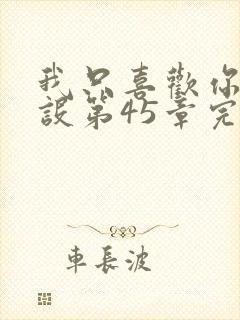 我只喜歡你
設第45章完
車長波